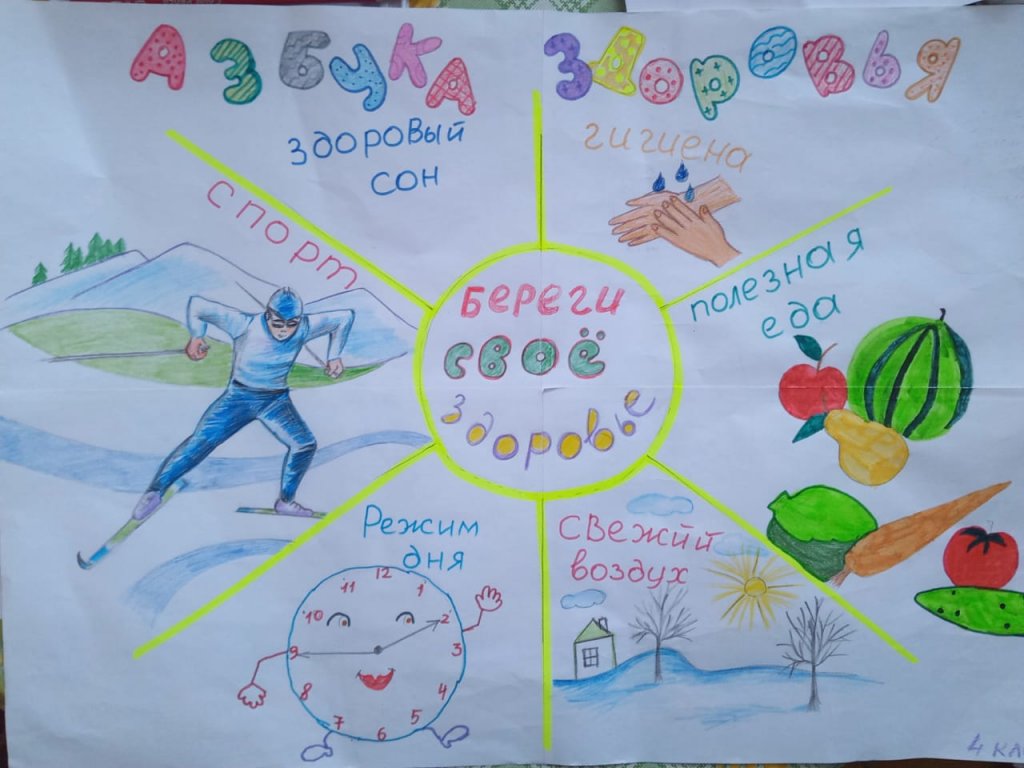 АЗБУКА ЗДОРОВЬЯ
здоровый
сон
гигиена
спорт
полезная
еда
БЕРЕГИ
СВОЁ
здоровье
Режим
дня
СВЕЖИЙ
ВОЗДУХ
12
11
1
10
2
9
3
8
4
7
5
6
4